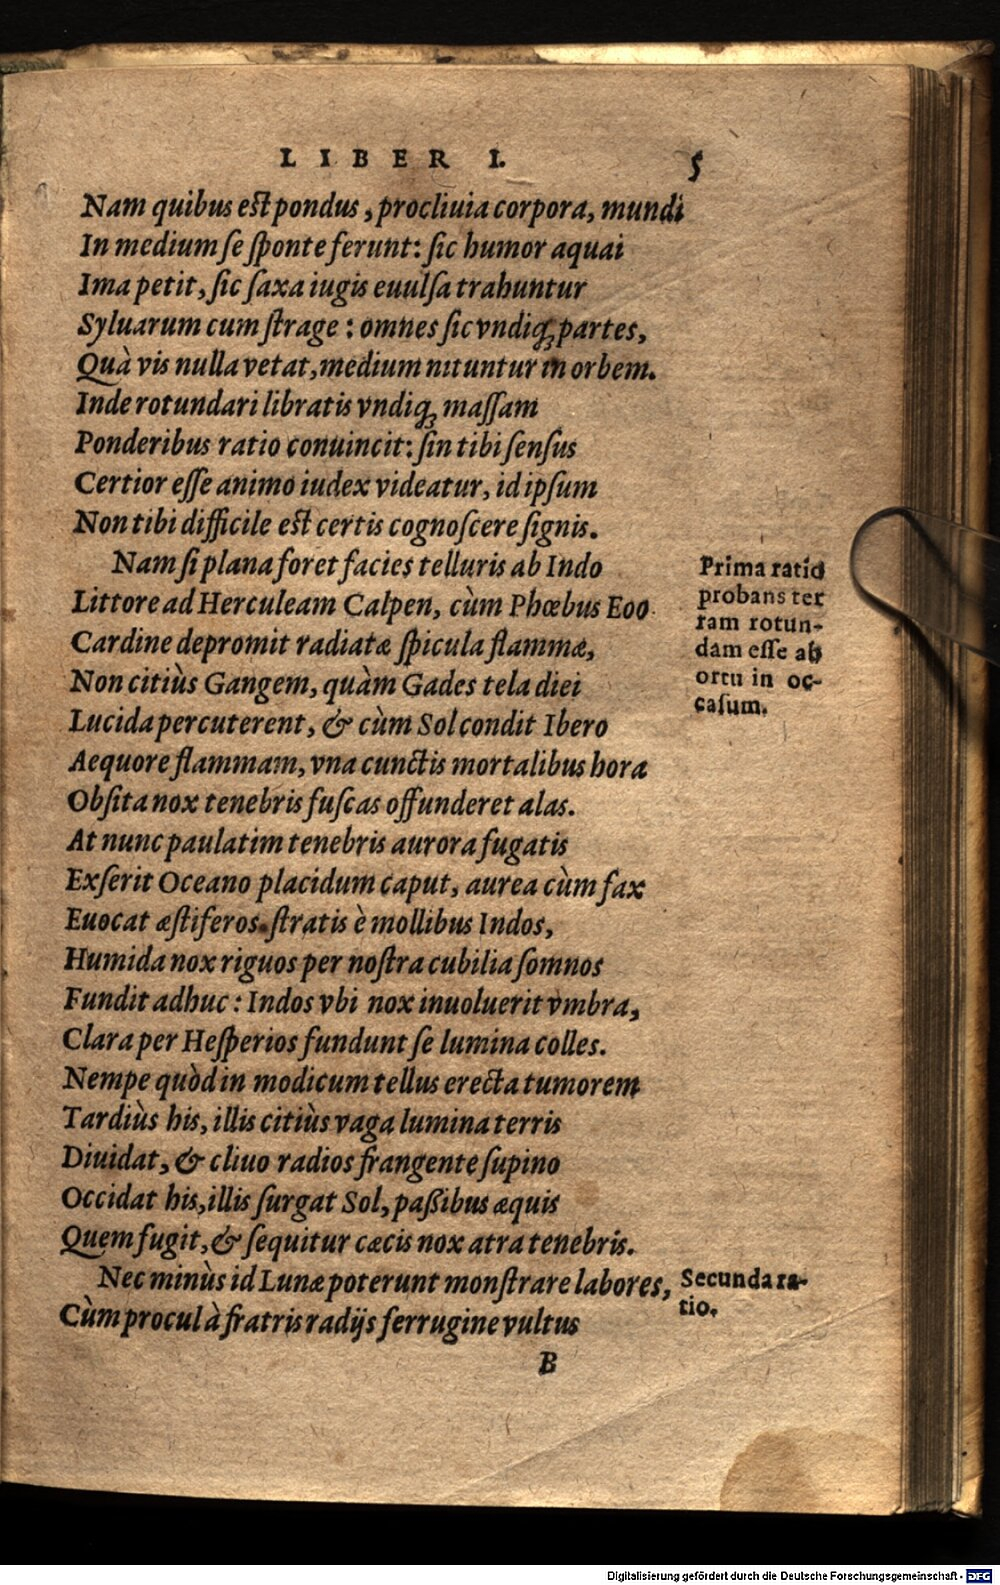 LIBER I. 5
Nam quibus est pondus, procliuia corpora, mundi
In medium se sponte ferunt: sic humor aquai
Ima petit, sic saxa iugis euulsa trahuntur
Syluarum cum strage: omnes sic vndiq; partes,
Quà vis nulla vetat, medium nituntur in orbem.
Inde rotundari libratis vndiq; massam
Ponderibus ratio conuincit: sin tibi sensus
Certior esse animo iudex videatur, id ipsum
Non tibi difficile est certis cognoscere signis.
Nam si plana foret facies telluris ab Indo
Littore ad Herculeam Calpen, cùm Phœbus Eoo
Cardine depromit radiatæ spicula flammæ,
Non citiùs Gangem, quàm Gades tela diei
Lucida percuterent, & cùm Sol condit Ibero
Aequore flammam, vna cunctis mortalibus hora
Obsita nox tenebris fuscas offunderet alas.
At nunc paulatim tenebris aurora fugatis
Exserit Oceano placidum caput, aurea cùm fax
Euocat æstiferos stratis è mollibus Indos,
Humida nox riguos per nostra cubilia somnos
Fundit adhuc: Indos vbi nox inuoluerit vmbra,
Clara per Hesperios fundunt se lumina colles.
Nempe quòd in modicum tellus erecta tumorem
Tardiùs his, illis citiùs vaga lumina terris
Diuidat, & cliuo radios frangente supino
Occidat his, illis surgat Sol, paßibus æquis
Quem fugit, & sequitur cæcis nox atra tenebris.
Nec minùs id Lunæ poterunt monstrare labores,
Cùm procul à fratris radijs ferrugine vultus
B
Prima ratio
probans ter
ram rotun-
dam esse ab
ortu in oc-
casum.
Secunda ra-
tio.
Digitalisierung gefördert durch die Deutsche Forschungsgemeinschaft - DFG